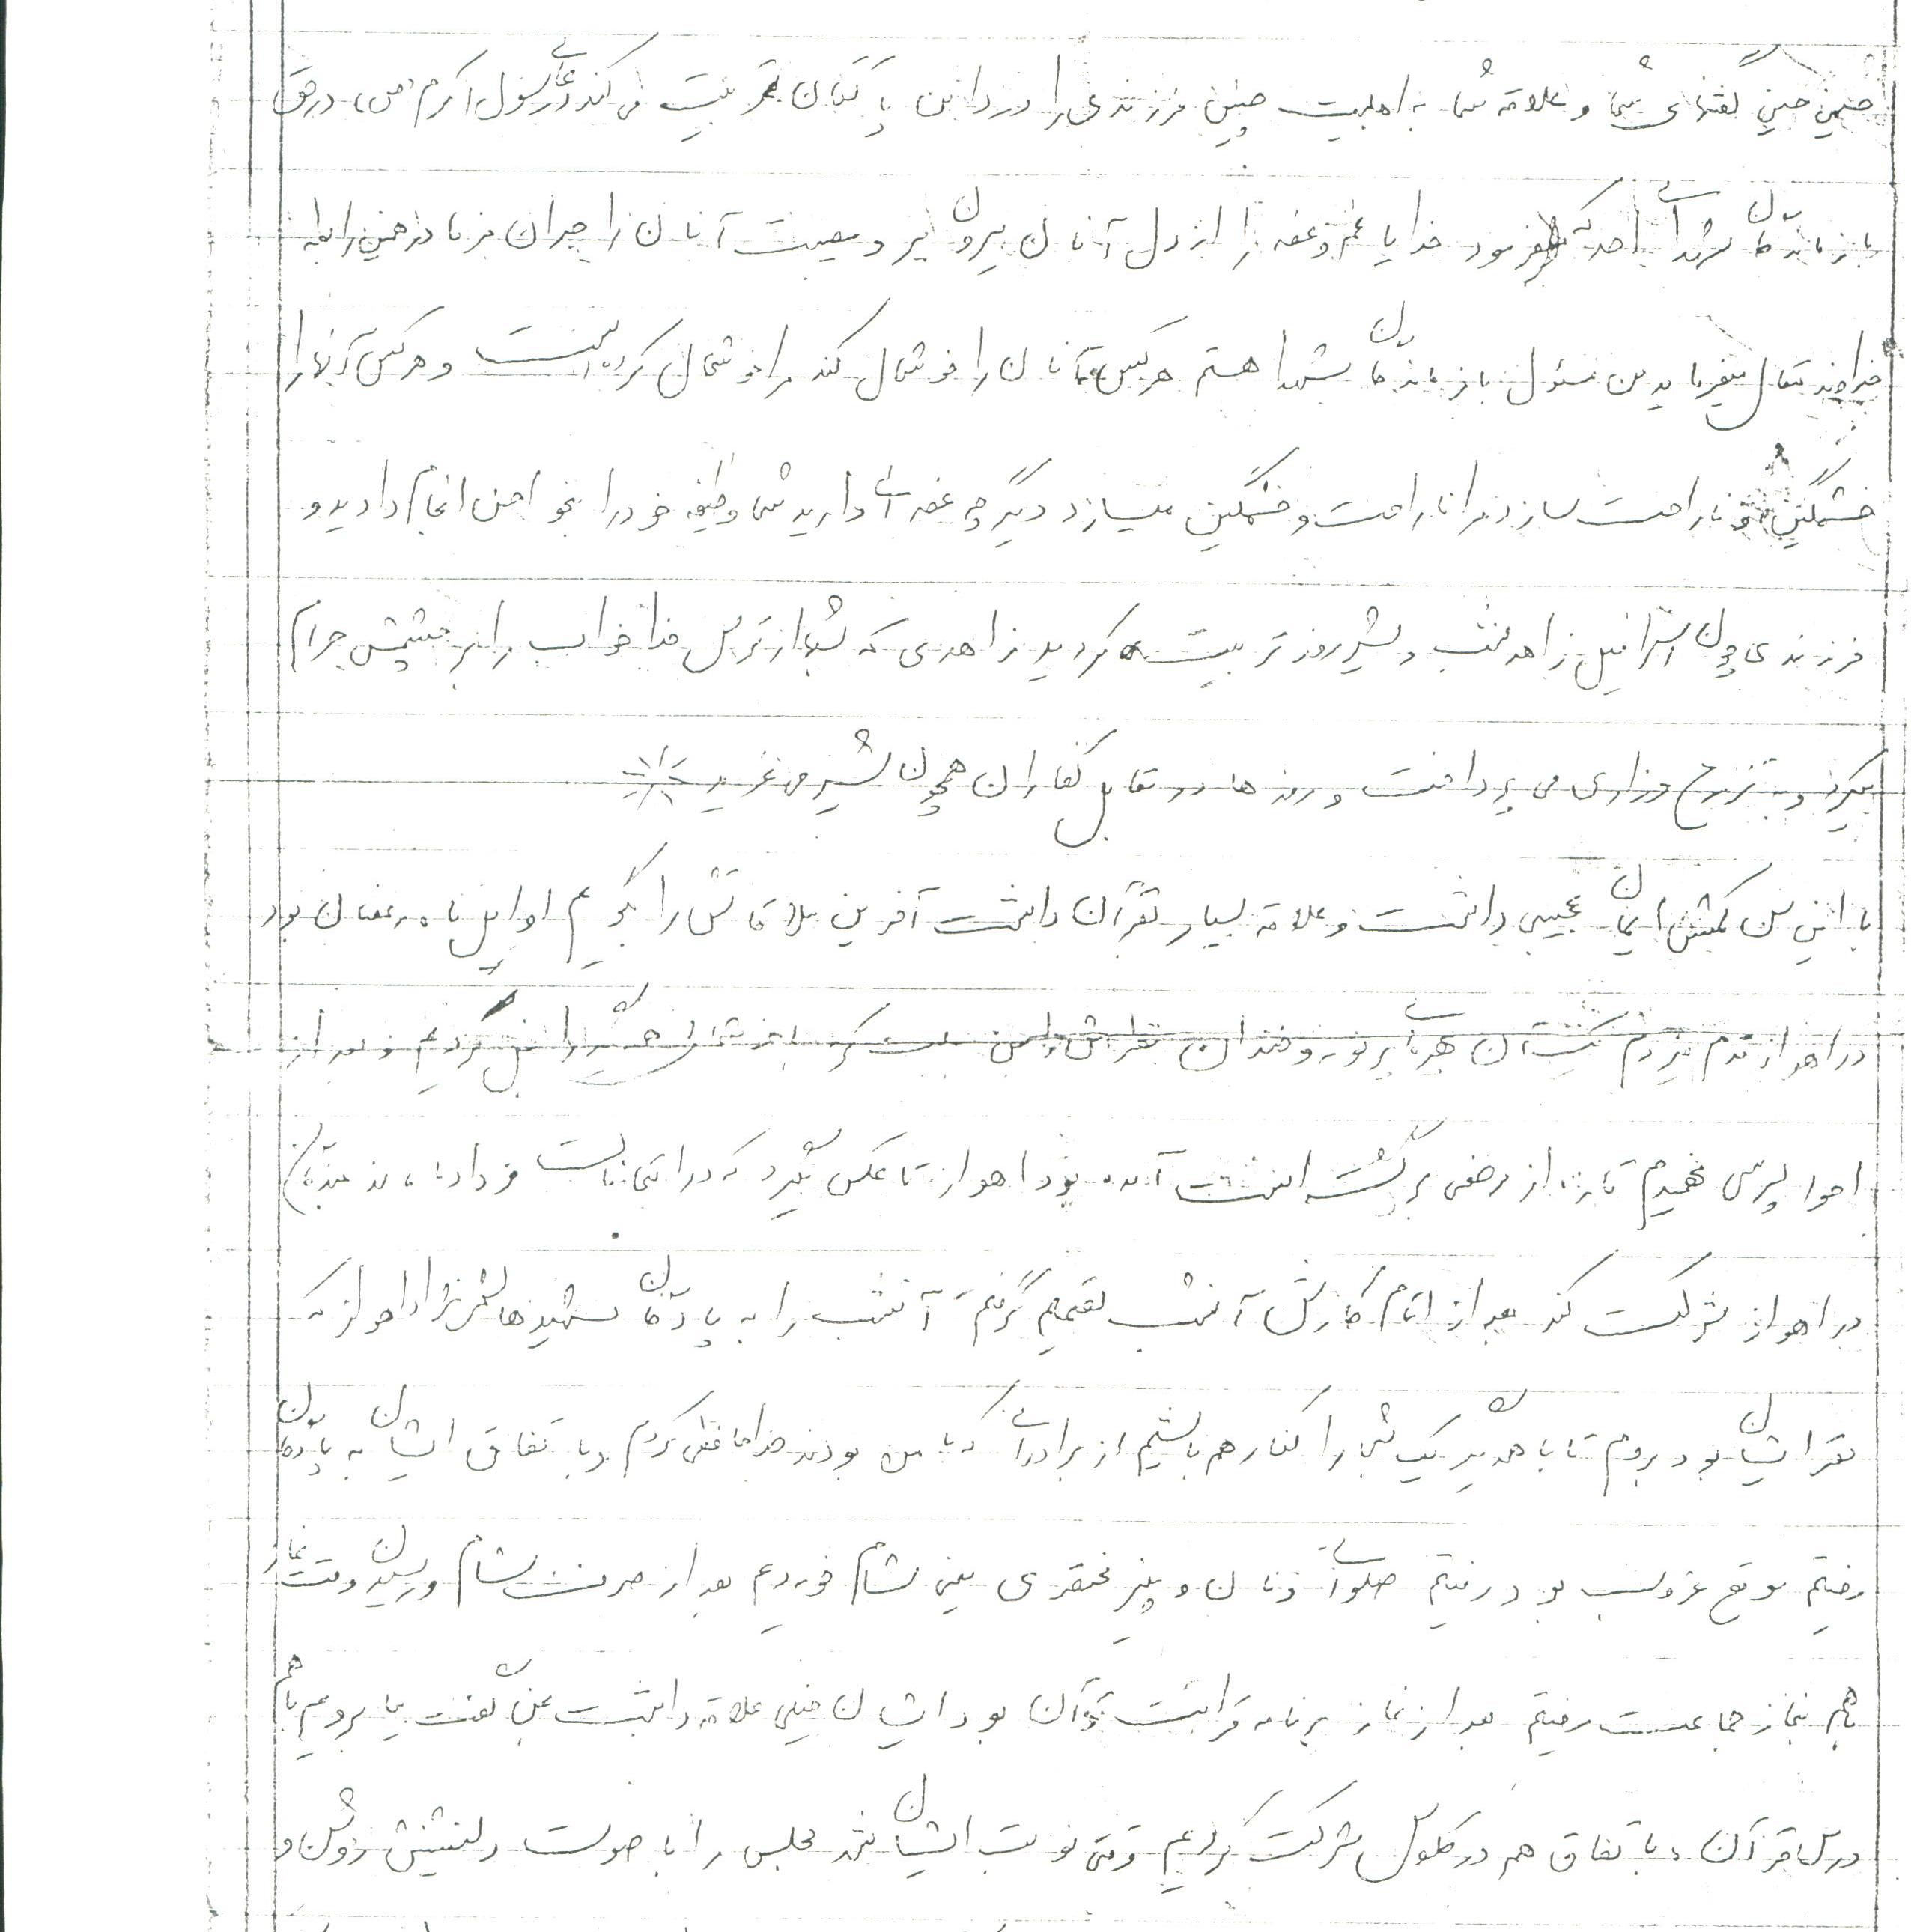 چنین گفتهای شما و علاقه شما به اهلبیت چنین فرزندی را در دامن پاکتان تربیت می کند دعای رسول اکرم (ص) در حق
بازماندگان شهدای احد که فرمود خدایا غم و غصه را از دل آنان بیرون بر و مصیبت آنان را جبران فرما در همین رابطه
خداوند متعال میفرماید من مسئول بازماندگان شهدا هستم هر کس آنان را خوشحال کند مرا خوشحال کرده است و هر کس آنها را
خشمگین و ناراحت سازد مرا ناراحت و خشمگین میسازد دیگر چه غصه ای دارید شما وظیفه خود را بنحو احسن انجام دادید و
فرزندی چون اسرافیل زاهد شب و شیر روز تربیت کردید زاهدی که شبها از ترس خدا خواب را بر چشمش حرام
میکرد و به تضرع و زاری می پرداخت و روزها در مقابل کفاران همچون شیر می غرید
با این سن کمش ایمان عجیبی داشت و علاقه بسیار بقرآن داشت آخرین ملاقاتش را بگویم اوایل ماه رمضان بود
در اهواز قدم میزدم یکی آن چهره پر نور و خندان بعد از
احوا پرسی فهمیدم تازه از مرخصی برگشته است آمده بود اهواز تا عکس بگیرد که در انتخابات خرداد ماه
در اهواز شرکت کند بعد از اتمام کارش آنشب تصمیم گرفتم آنشب را به پادگان شهید اهواز که
مقر ایشان بود بروم تا با همدیگر یک شب را کنار هم باشیم از برادرانی که با من بودند خداحافظی کردم و با تفاق ایشان به پادگان
رفتیم موقع غروب بود رفتیم و نان و پنیر مختصری یعنی شام خوردیم بعد از صرف شام و رسیدن وقت نماز
باهم بنماز جماعت رفتیم بعد از نماز برنامه قرائت قرآن بود ایشان خیلی علاقه داشت بمن گفت بیا برویم باهم
درس قرآن و با تفاق هم در کلاس شرکت کردیم وقتی نوبت ایشان شد مجلس را با صوت دلنشینش روشن و